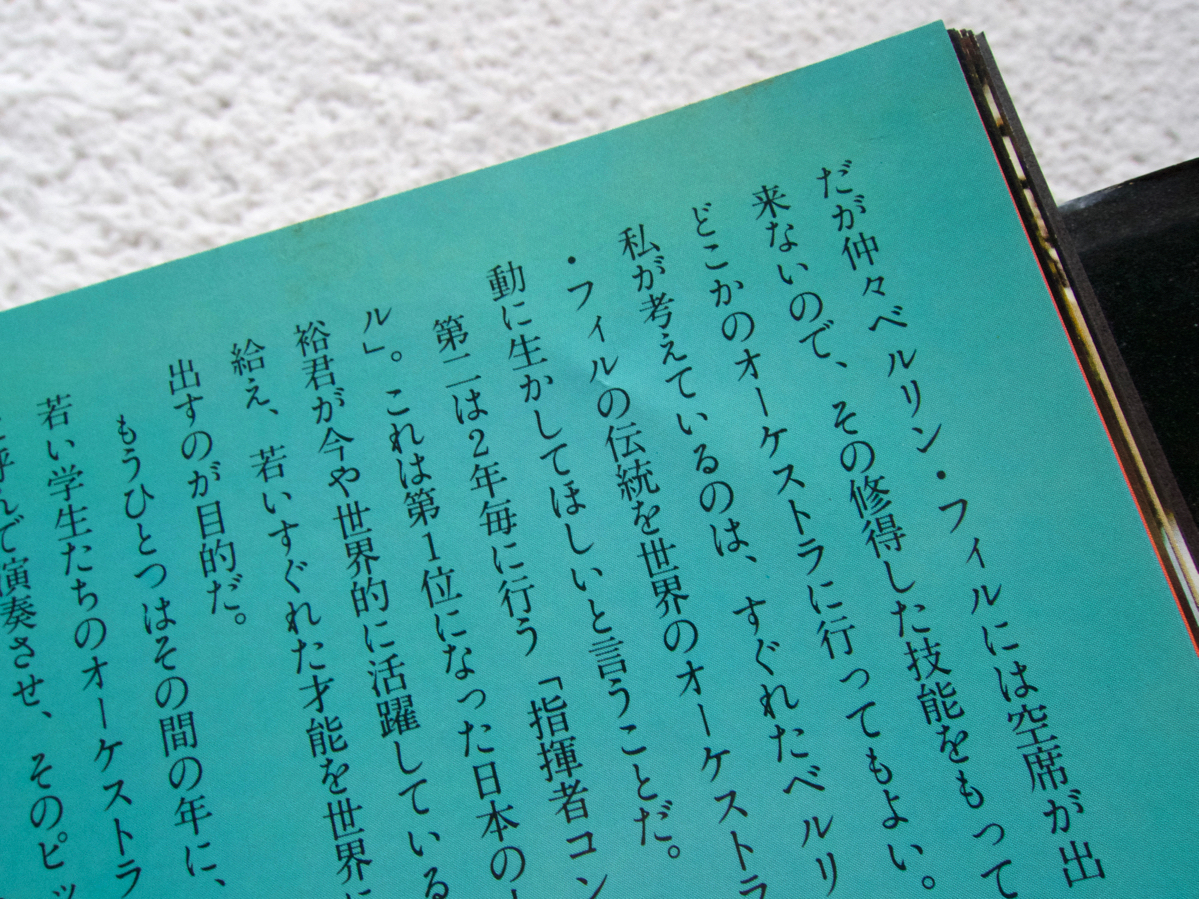 だが仲々ベルリン・フィルには空席が出
来ないので、その修得した技能をもって
どこかのオーケストラに行ってもよい。
私が考えているのは、すぐれたベルリ
・フィルの伝統を世界のオーケストラ
動に生かしてほしいと言うことだ。
第二は2年毎に行う「指揮者コン
ル」。これは第1位になった日本の
裕君が今や世界的に活躍している
給え、若いすぐれた才能を世界に
出すのが目的だ。
もうひとつはその間の年に、
若い学生たちのオーケストラ
呼んで演奏させ、そのピッ